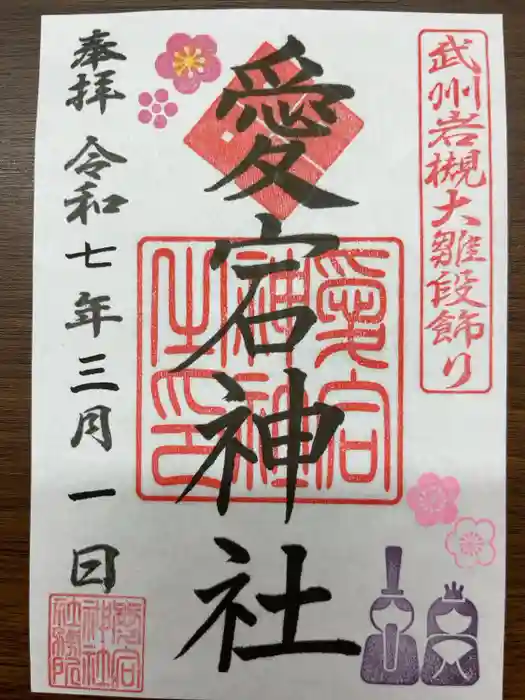 武州岩槻大雛段飾り
愛宕神社
愛宕神社之印
奉拝 令和七年三月一日
愛宕神社社務所